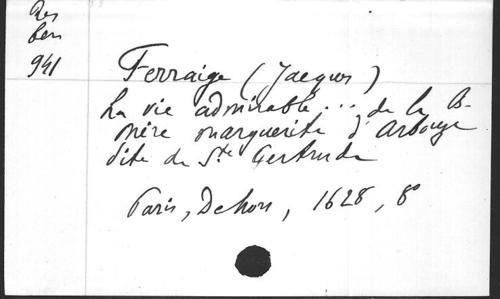 Res
Ferraige (Jacques)
La vie admirable... de la B-
mère marguerite d'Arbouze
dite de Ste Gertrude
941
Paris, Dehors, 1628, 8°